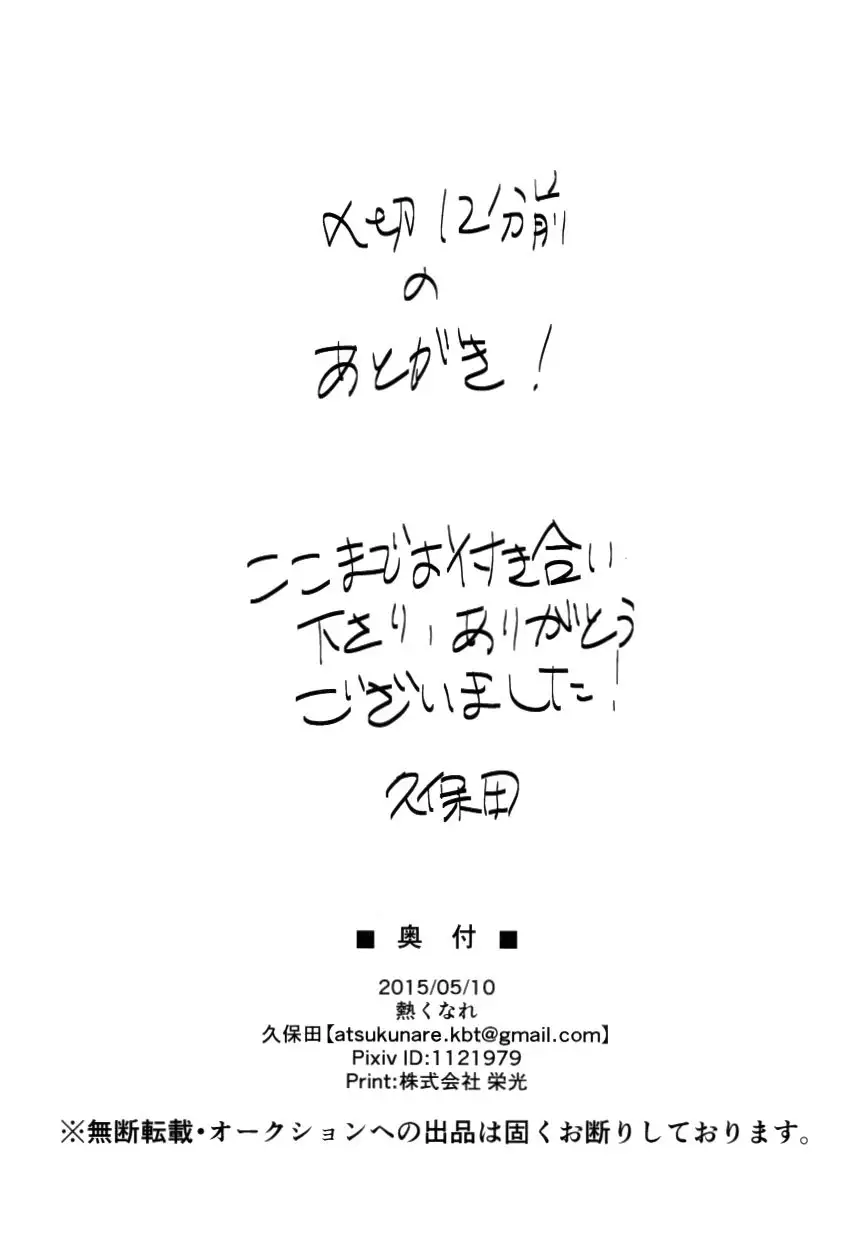 〆切12分前
の
あとがき!
ここまでお付き合い
下さり、ありがとう
ございました!
久保田
■ 奥 付 ■
2015/05/10
熱くなれ
久保田【atsukunare.kbt@gmail.com】
Pixiv ID:1121979
Print:株式会社 栄光
※無断転載・オークションへの出品は固くお断りしております。